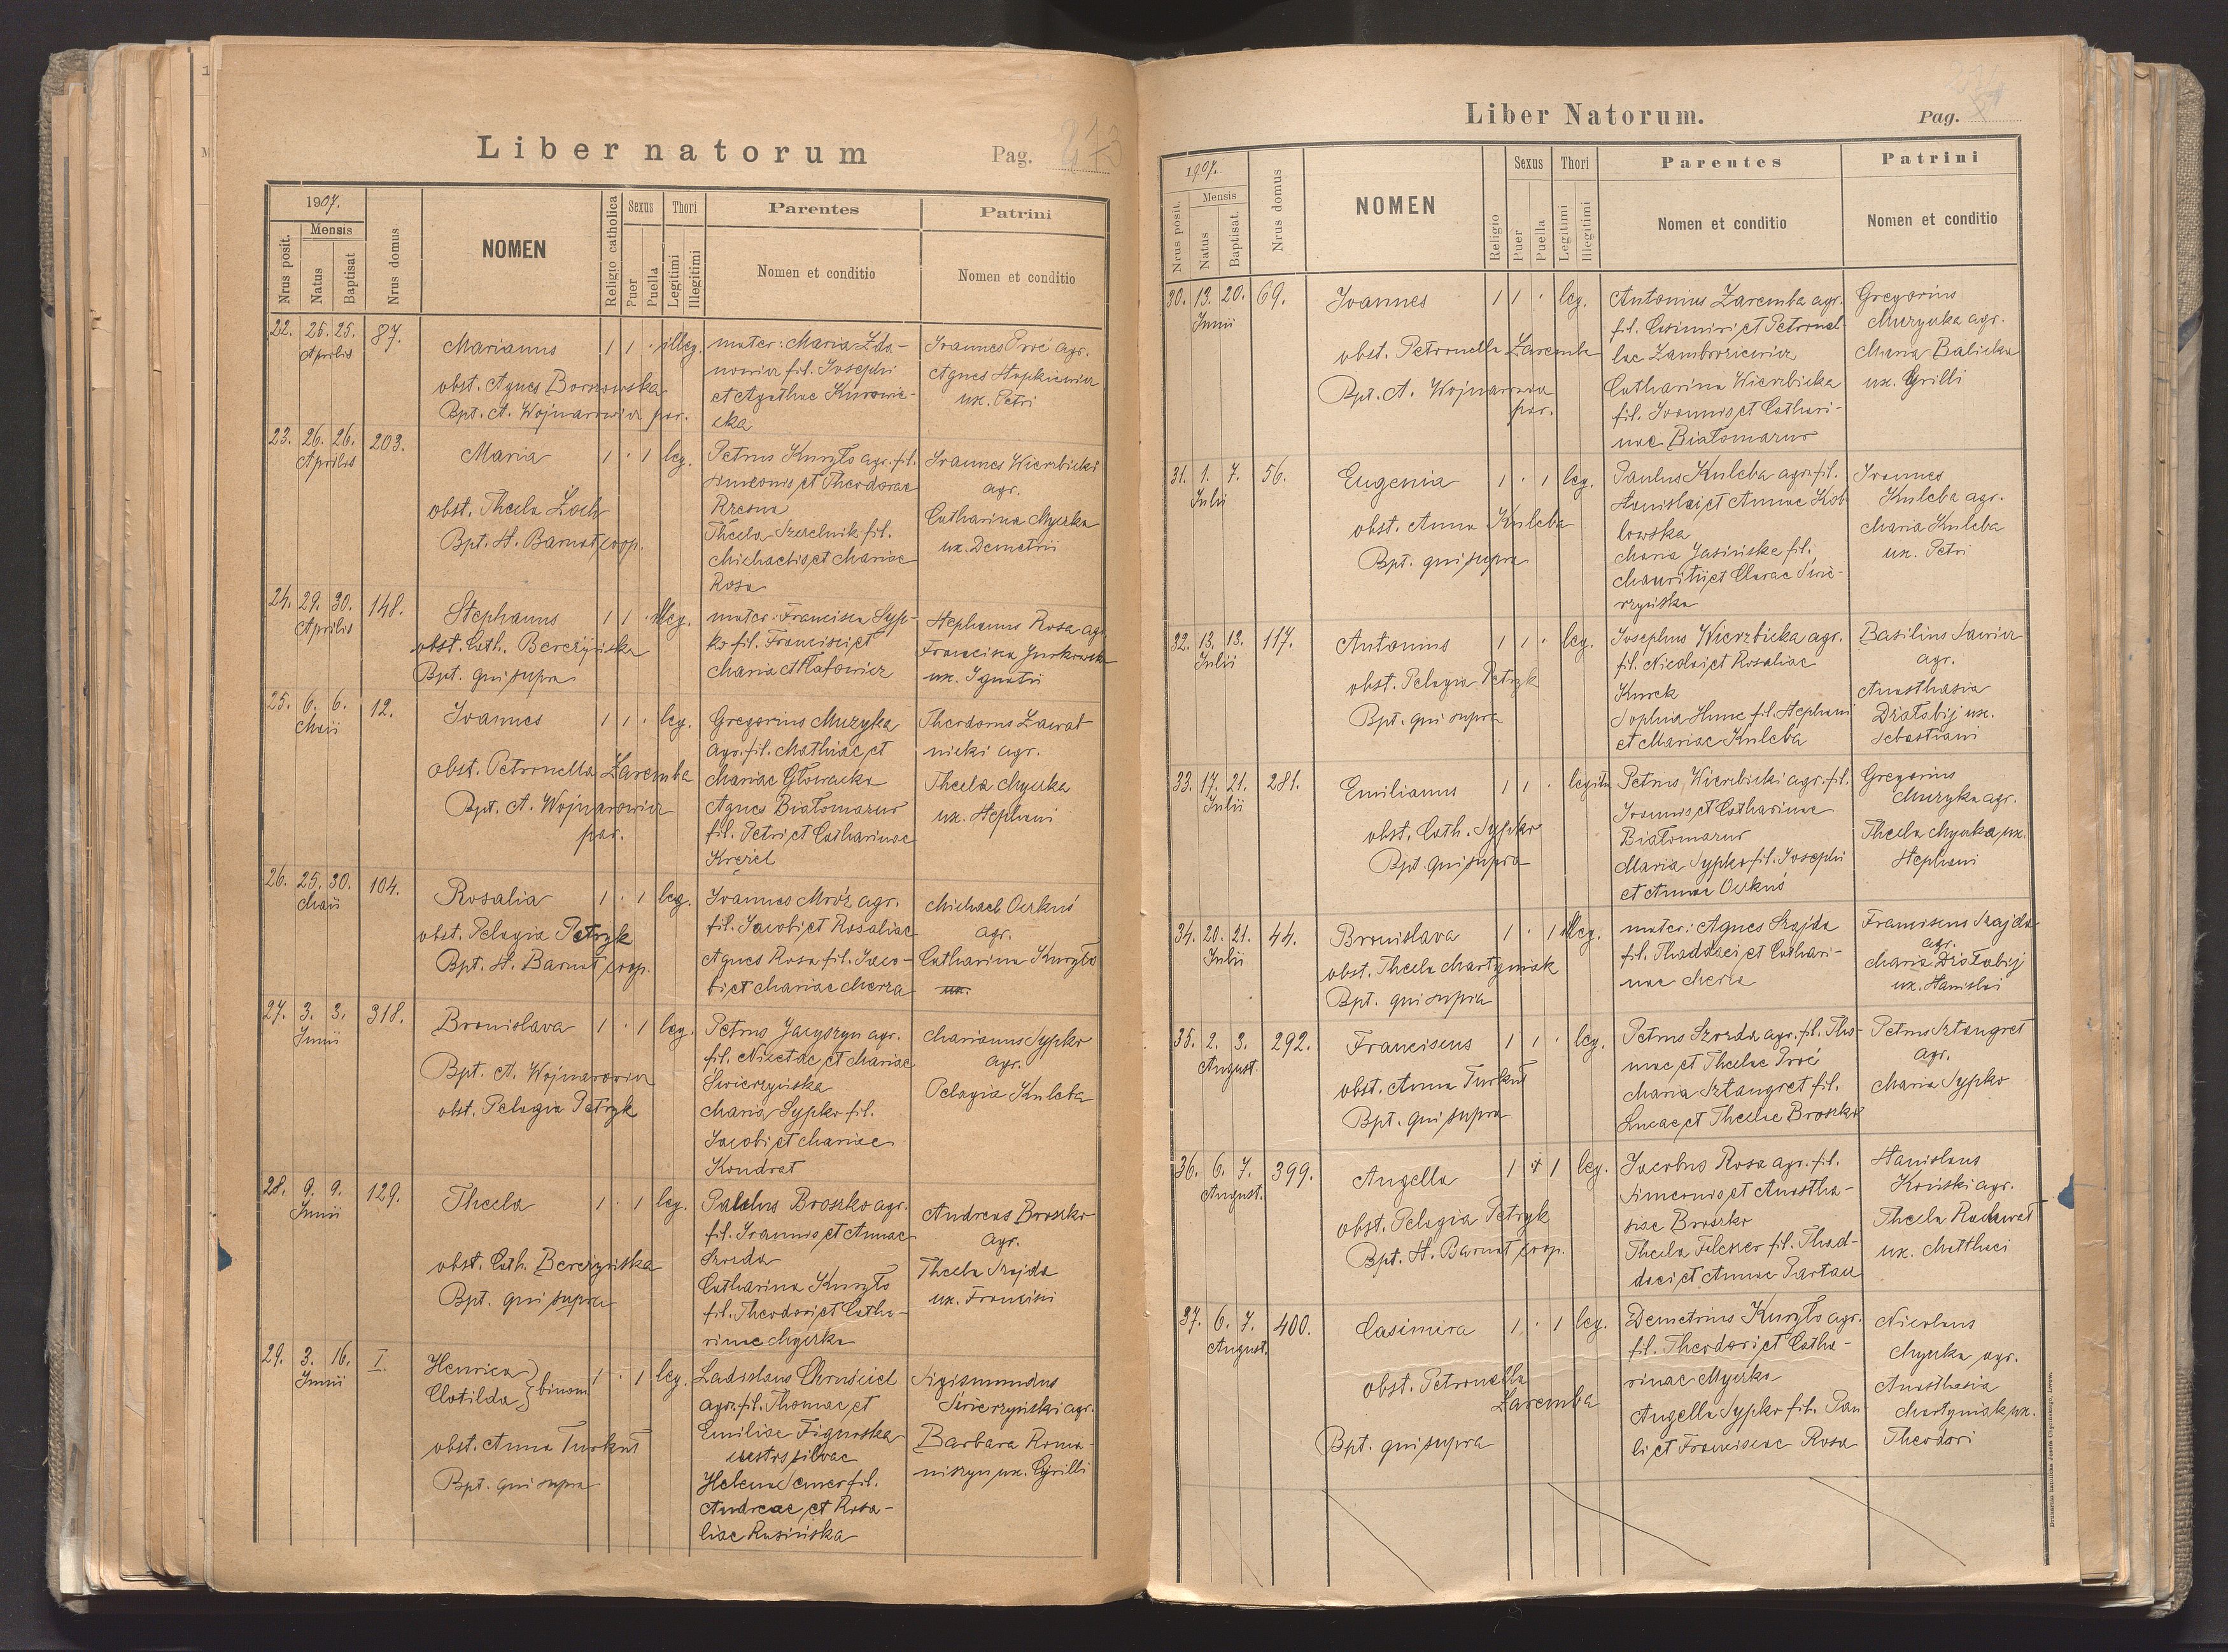 Liber natorum
Pag. 273
1907.
Mensis
Nrus posit.
Natus
Baptisat
Nrus domus
NOMEN
Religio catholica
Sexus
Puer
Puella
Thori
Legitimi
Illegitimi
Parentes
Nomen et conditio
Patrini
Nomen et conditio
22. 25. 25. Aprilis 87.
Marianus
1 1 · illeg.
obst. Agnes Borszowska
Bpt. A. Wojnarowicz par.
mater: Maria Zda-
nowicz fil. Josephi
et Agathae Kurowic-
cka
Joannes Proć agr.
Agnes Hapkiewicz
ux. Petri
23. 26. 26. Aprilis 203.
Maria
1 · 1 leg.
obst. Thecla Zoch
Bpt. H. Barnat coop.
Petrus Kuryło agr. fil.
Simeonis et Theodorae
Rzesna
Thecla Szczelnik fil.
Michaelis et Mariae
Rosa
Joannes Wierzbicki
agr.
Catharina Mycka
ux. Demetrii
24. 29. 30. Aprilis 148.
Stephanus
1 1 · illeg.
obst. Cath. Bereżyńska
Bpt. qui supra
mater: Francisca Syp-
ko fil. Francisci et
Maria Hatowicz
Stephanus Rosa agr.
Francisca Jurkowska
ux. Ignatii
25. 6. 6. Maii 12.
Joannes
1 1 · leg.
obst. Petronella Zaremba
Bpt. A. Wojnarowicz
par.
Gregorius Muzyka
agr. fil. Mathiae et
Mariae Głowacka
Agnes Białomazur
fil. Petri et Catharinae
Krężel
Theodorus Zawat
nicki agr.
Thecla Mycka
ux. Stephani
26. 25. 30. Maii 104.
Rosalia
1 · 1 leg.
obst. Pelagia Petryk
Bpt. H. Barnat coop.
Joannes Mróz agr.
fil. Jacobi et Rosaliae
Agnes Rosa fil. Jaco-
bi et Mariae Merza
Michael Ockuś
agr.
Catharina Kuryło
ux.
27. 3. 3. Junii 318.
Bronislava
1 · 1 leg.
Bpt. A. Wojnarowicz
obst. Pelagia Petryk
Petrus Jacyszyn agr.
fil. Nicetae et Mariae
Swierzyńska
Maria Sypko fil.
Jacobi et Mariae
Kondrat
Marianus Sypko
agr.
Pelagia Kuleba
28. 9. 9. Junii 129.
Thecla
1 · 1 leg.
obst. Cath. Bereżyńska
Bpt. qui supra
Paulus Broszko agr.
fil. Joannis et Annae
Szozda
Catharina Kuryło
fil. Theodori et Catha-
rinae Mycka
Andreas Broszko
agr.
Thecla Szajda
ux. Francisci
29. 3. 16. Junii I.
Henrica
Clotilda } binom
1 · 1 leg.
obst. Anna Turkut
Bpt. qui supra
Ladislaus Chruściel
agr. fil. Thomae et
Emiliae Figurska
custos silvae
Helena Semer fil.
Andreae et Rosa-
liae Rusińska
Sigismundus
Świerzyński agr.
Barbara Roma-
niszyn ux. Cyrilli
Liber Natorum.
Pag.
1907.
Mensis
Nrus posit.
Natus
Baptisat.
Nrus domus
NOMEN
Religio
Sexus
Puer
Puella
Thori
Legitimi
Illegitimi
Parentes
Nomen et conditio
Patrini
Nomen et conditio
30. 13. 20. Junii 69.
Joannes
1 1 · leg.
obst. Petronella Zaremba
Bpt. A. Wojnarowicz
par.
Antonius Zaremba agr.
fil. Casimiri et Petronel-
lae Zambroziewicz
Catharina Wierzbicka
fil. Joannis et Cathari-
nae Białomazur
Gregorius
Muzyka agr.
Maria Balicka
ux. Cyrilli
31. 1. 7. Julii 56.
Eugenia
1 · 1 leg.
obst. Anna Kuleba
Bpt. qui supra
Paulus Kuleba agr. fil.
Stanislai et Annae Kob
lowska
Maria Jasińska fil.
Mauritii et Clarae Świe-
rzyńska
Joannes
Kuleba agr.
Maria Kuleba
ux. Petri
32. 13. 13. Julii 117.
Antonius
1 1 · leg.
obst. Pelagia Petryk
Bpt. qui supra
Josephus Wierzbicka agr.
fil. Nicolai et Rosaliae
Kurek
Sophia Hune fil. Stephani
et Mariae Kuleba
Basilius Sawicz
agr.
Anasthasia
Działobij ux.
Sebastiani
33. 17. 21. Julii 281.
Emilianus
1 1 · legitu
obst. Cath. Sypko
Bpt. qui supra
Petrus Wierzbicki agr. fil.
Joannis et Catharinae
Białomazur
Maria Sypko fil. Josephi
et Annae Ockuś
Gregorius
Muzyka agr.
Thecla Mycka ux.
Stephani
34. 20. 21. Julii 44.
Bronislava
1 · 1 illeg.
obst. Thecla Martyniak
Bpt. qui supra
mater: Agnes Szajda
fil. Thaddaei et Cathari-
nae Merza
Franciscus Szajda
agr.
Maria Działobij
ux. Stanislai
35. 2. 3. August. 292.
Franciscus
1 1 · leg.
obst. Anna Turkut
Bpt. qui supra
Petrus Szozda agr. fil. Tho-
mae et Theclae Proć
Maria Sztangret fil.
Lucae et Theclae Broszko
Petrus Sztangret
agr.
Maria Sypko
36. 6. 7. August. 399.
Angella
1 · 1 leg.
obst. Pelagia Petryk
Bpt. H. Barnat coop.
Jacobus Rosa agr. fil.
Simeonis et Anastha-
siae Broszko
Thecla Felczer fil. Thad-
daei et Annae Partau
Stanislaus
Koński agr.
Thecla Rachwał
ux. Matthaei
37. 6. 7. August. 400.
Casimira
1 · 1 leg.
obst. Petronella
Zaremba
Bpt. qui supra
Demetrius Kuryło agr.
fil. Theodori et Catha-
rinae Mycka
Angella Sypko fil. Pau-
li et Franciscae Rosa
Nicolaus
Mycka agr.
Anasthasia
Martyniak ux.
Theodori